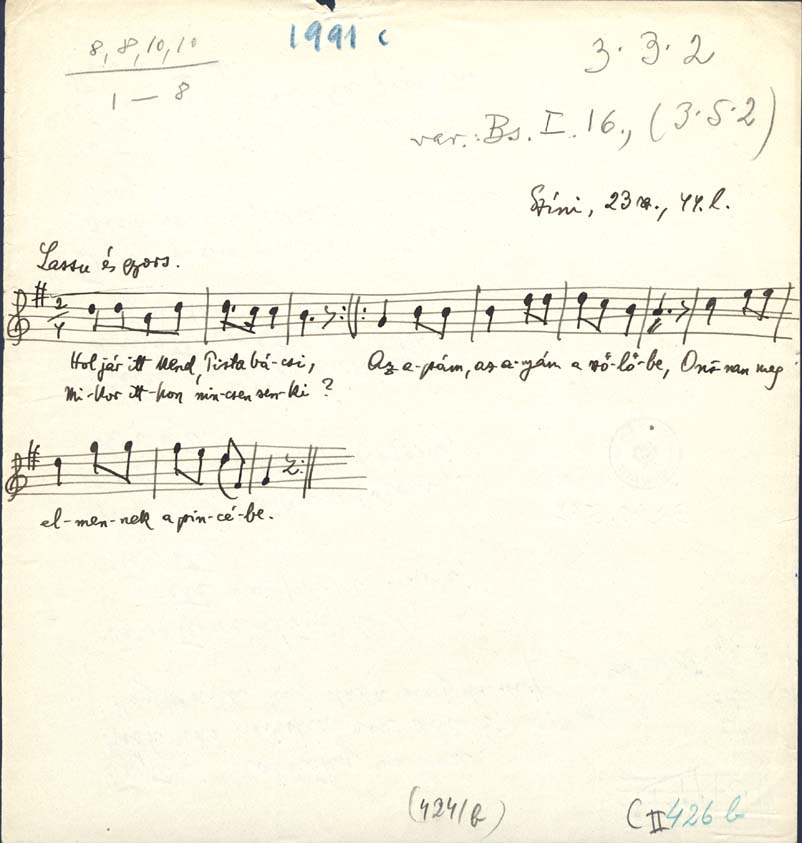 8, 8, 10, 10
1 — 8
1991 c
3 · 3 · 2
var.: Bs. I. 16., (3·5·2)
Színi, 23 sz., 44. l.
Lassu és gyors.
2/4
Hol jár itt kend, Pista bá-csi, Az a-pám, az a-nyám a ző-lő-be, On-nan meg
Mi-kor it-hon nin-csen sen-ki?
el-men-nek a pin-cé-be.
(424/b)
C II 426 b